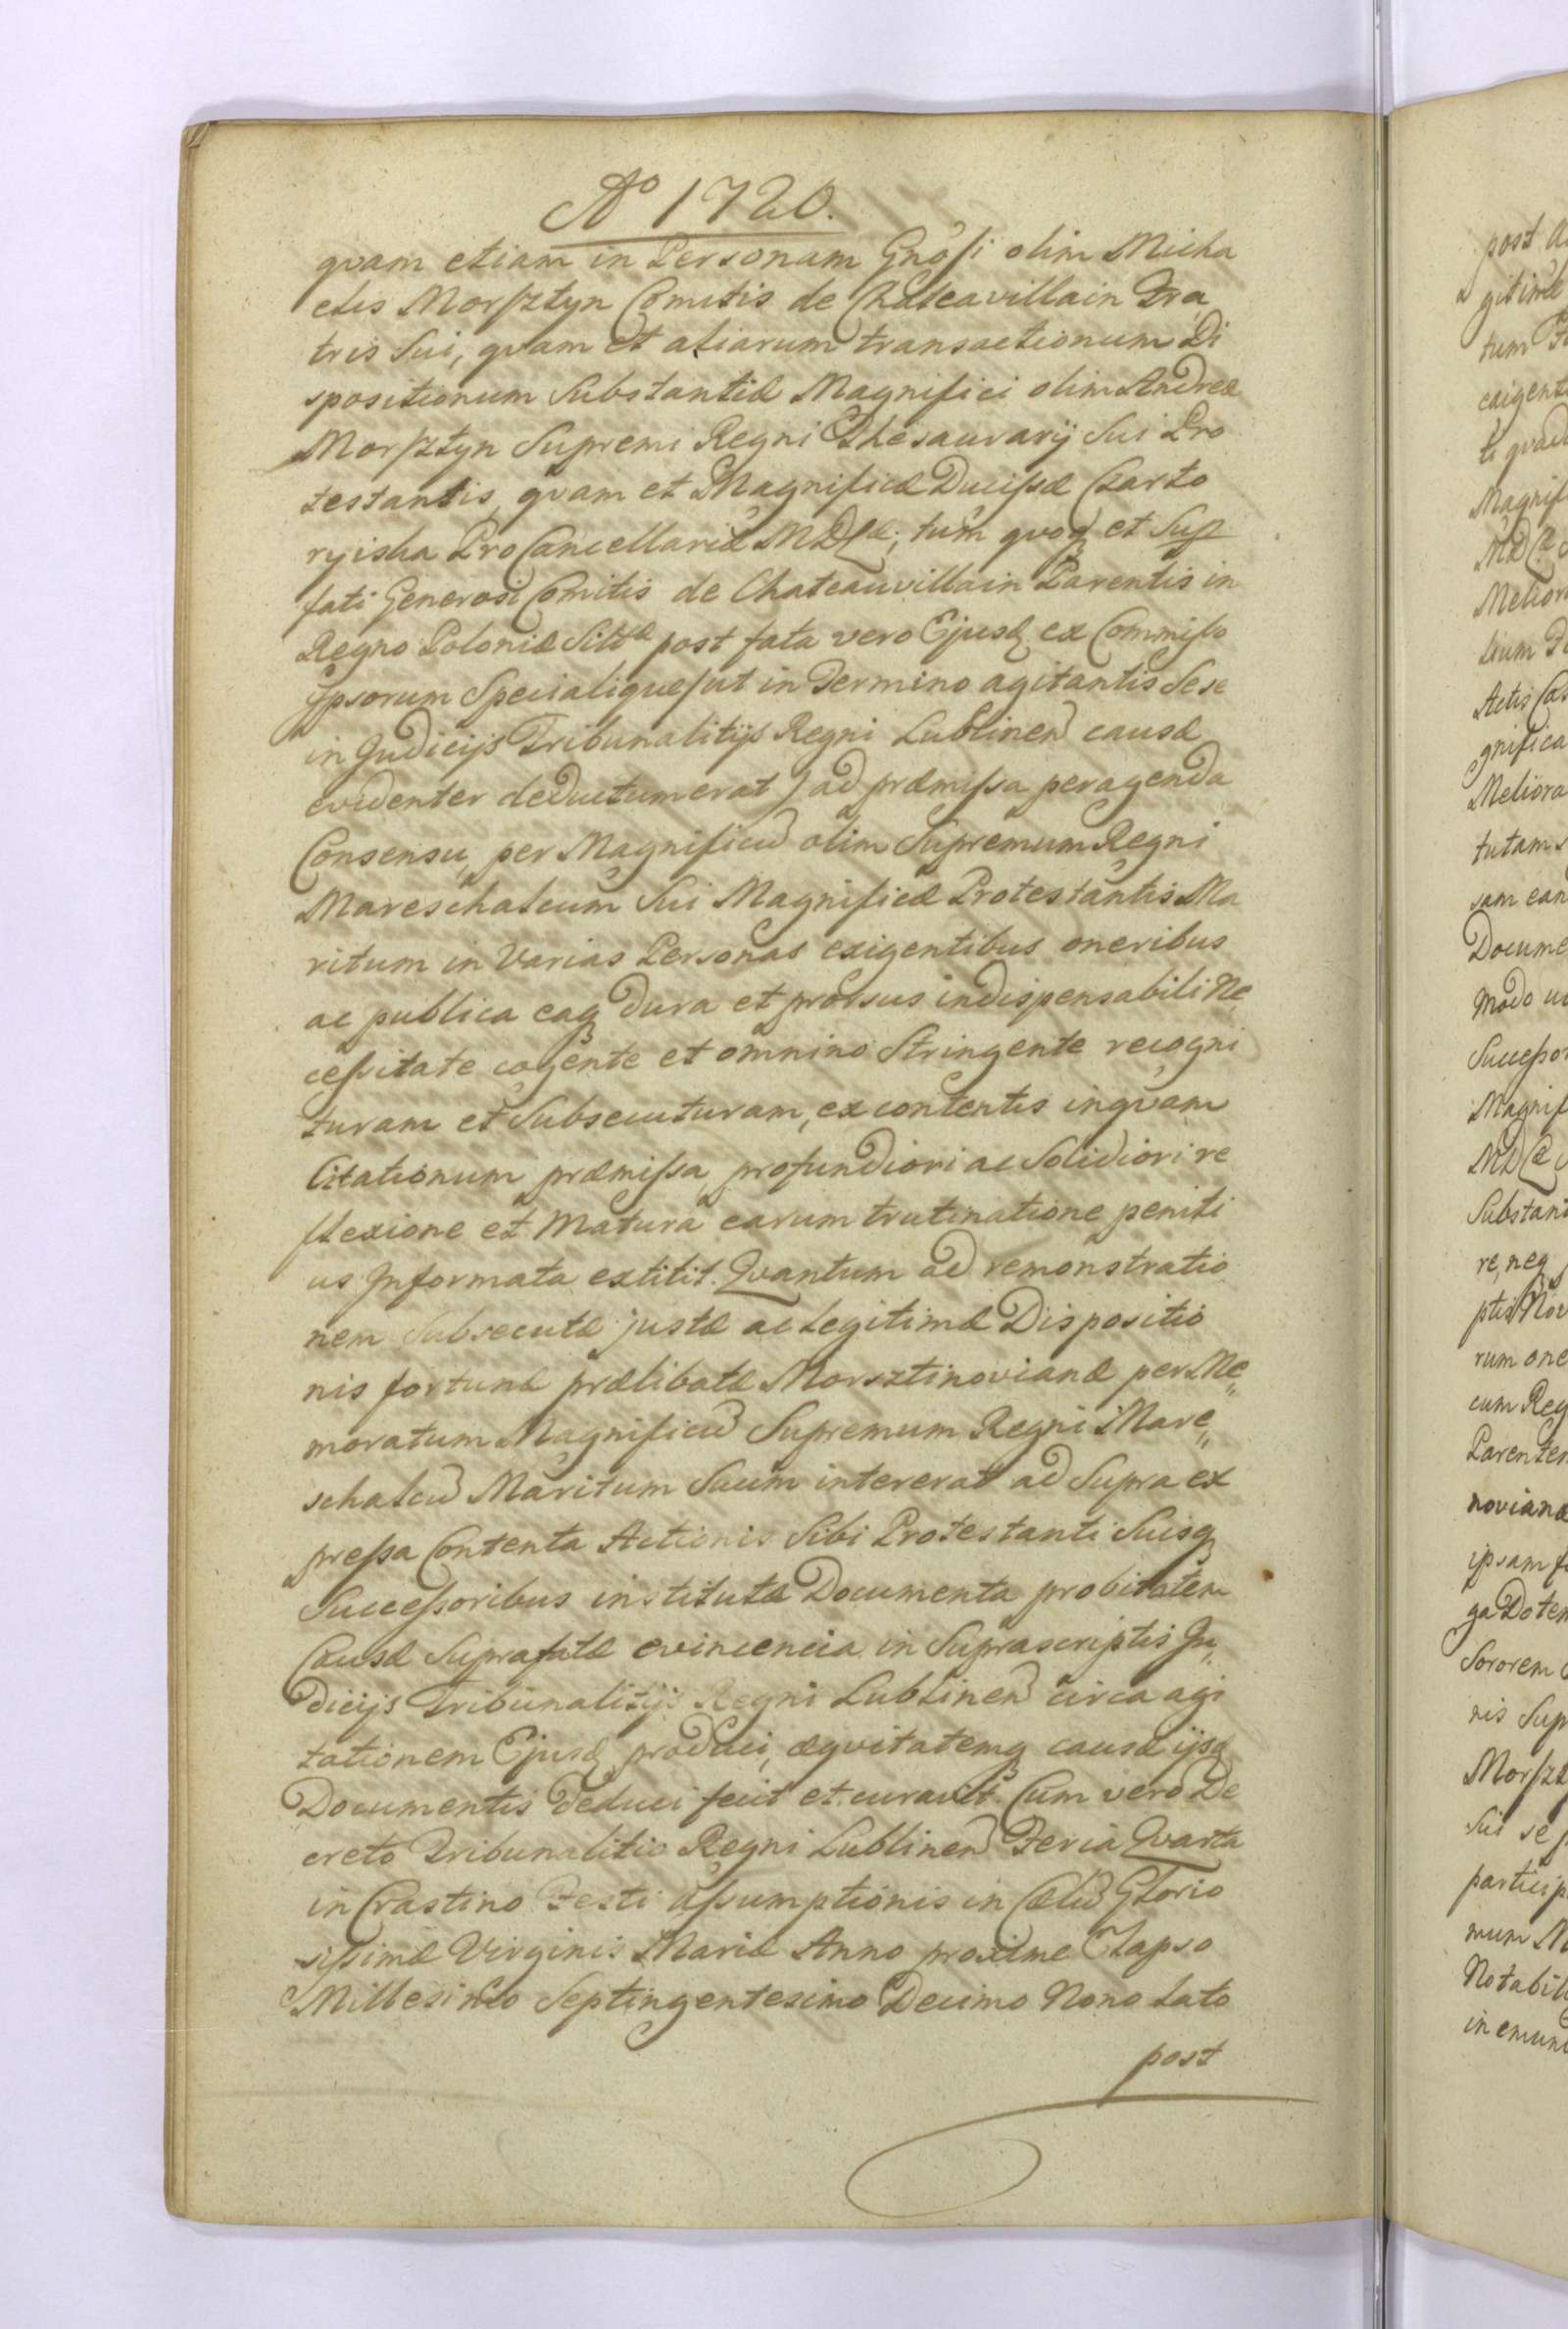 Aº 1720.
qvam etiam in Personam Gnosi olim Micha
elis Morsztyn Comitis de Chateavillain Fra
tris Sui, qvam et aliarum transactionum Di
spositionum Substantiæ Magnifici olim Andreæ
Morsztyn Supremi Regni Thesaurarij Sui Pro
testantis, qvam et Magnificæ Ducissæ Czarto
ryiska ProCancellariæ MDL; tum qvoq et Sup
fati Generosi Comitis de Chateauvillain Parentis in
Regno Poloniæ post fata vero Ejusd ex Commisso
Ipsorum Specialique (ut in Termino agitantis Sese
in Judicijs Tribunalitijs Regni Lublinen causæ
evidenter deductum erat) ad præmissa peragenda
Consensu, per Magnificu olim Supremum Regni
Mareschalcum Sui Magnificæ Protestantis Ma
ritum in Varias Personas exigentibus oneribus
ac publica eaq dura et prorsus indispensabili Ne
cessitate cogente et omnino Stringente recogni
turam et Subsecuturam, ex contentis inqvam
Citationum præmissa profundiori ac Solidiori re
flexione et Matura earum trutinatione peniti
us Informata extitit. Qvantum ad remonstratio
nem Subsecutæ justæ ac Legitimæ Dispositio
nis fortunæ prælibatæ Morsztinovianæ per Me
moratum Magnificu Supremum Regni Mare
schalcu Maritum Suum intererat ad Supra ex
pressa Contenta Actionis Sibi Protestanti Suisq
Successoribus institutæ Documenta probitatem
Causæ Suprafatæ evincencia in Suprascriptis Ju
dicijs Tribunalitijs Regni Lublinen circa agi
tationem Ejusd produci, æqvitatemq causæ ijsd
Documentis deduci fecit et curavit. Cum vero De
creto Tribunalitio Regni Lublinen Feria Qvarta
in Crastino Festi Assumptionis in Cælu Glorio
sissimæ Virginis Mariæ Anno proxime Elapso
Millesimo Septingentesimo Decimo Nono Lato
post